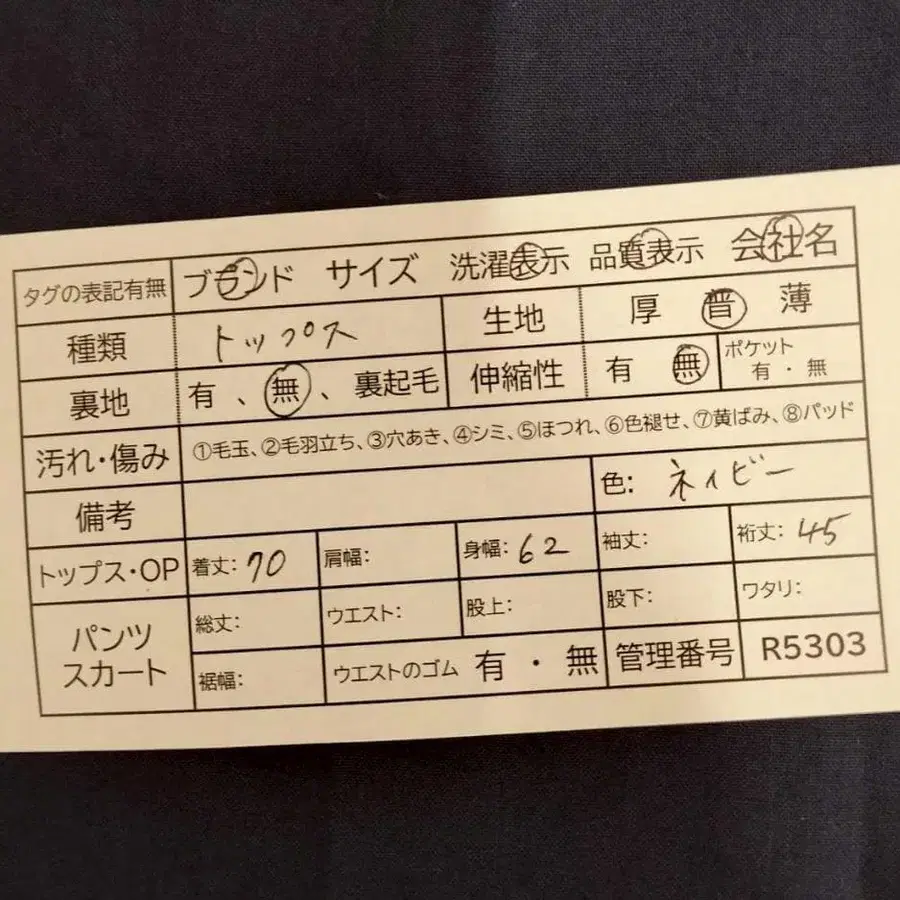 タグの表記有無 ブランド サイズ 洗濯表示 品質表示 会社名
種類 トップス 生地 厚 普 薄
裏地 有 、 無 、 裏起毛 伸縮性 有 無 ポケット 有 ・ 無
汚れ・傷み ①毛玉、②毛羽立ち、③穴あき、④シミ、⑤ほつれ、⑥色褪せ、⑦黄ばみ、⑧パッド
備考 色: ネイビー
トップス・OP 着丈: 70 肩幅: 身幅: 62 袖丈: 裄丈: 45
パンツ スカート 総丈: ウエスト: 股上: 股下: ワタリ:
裾幅: ウエストのゴム 有 ・ 無 管理番号 R5303